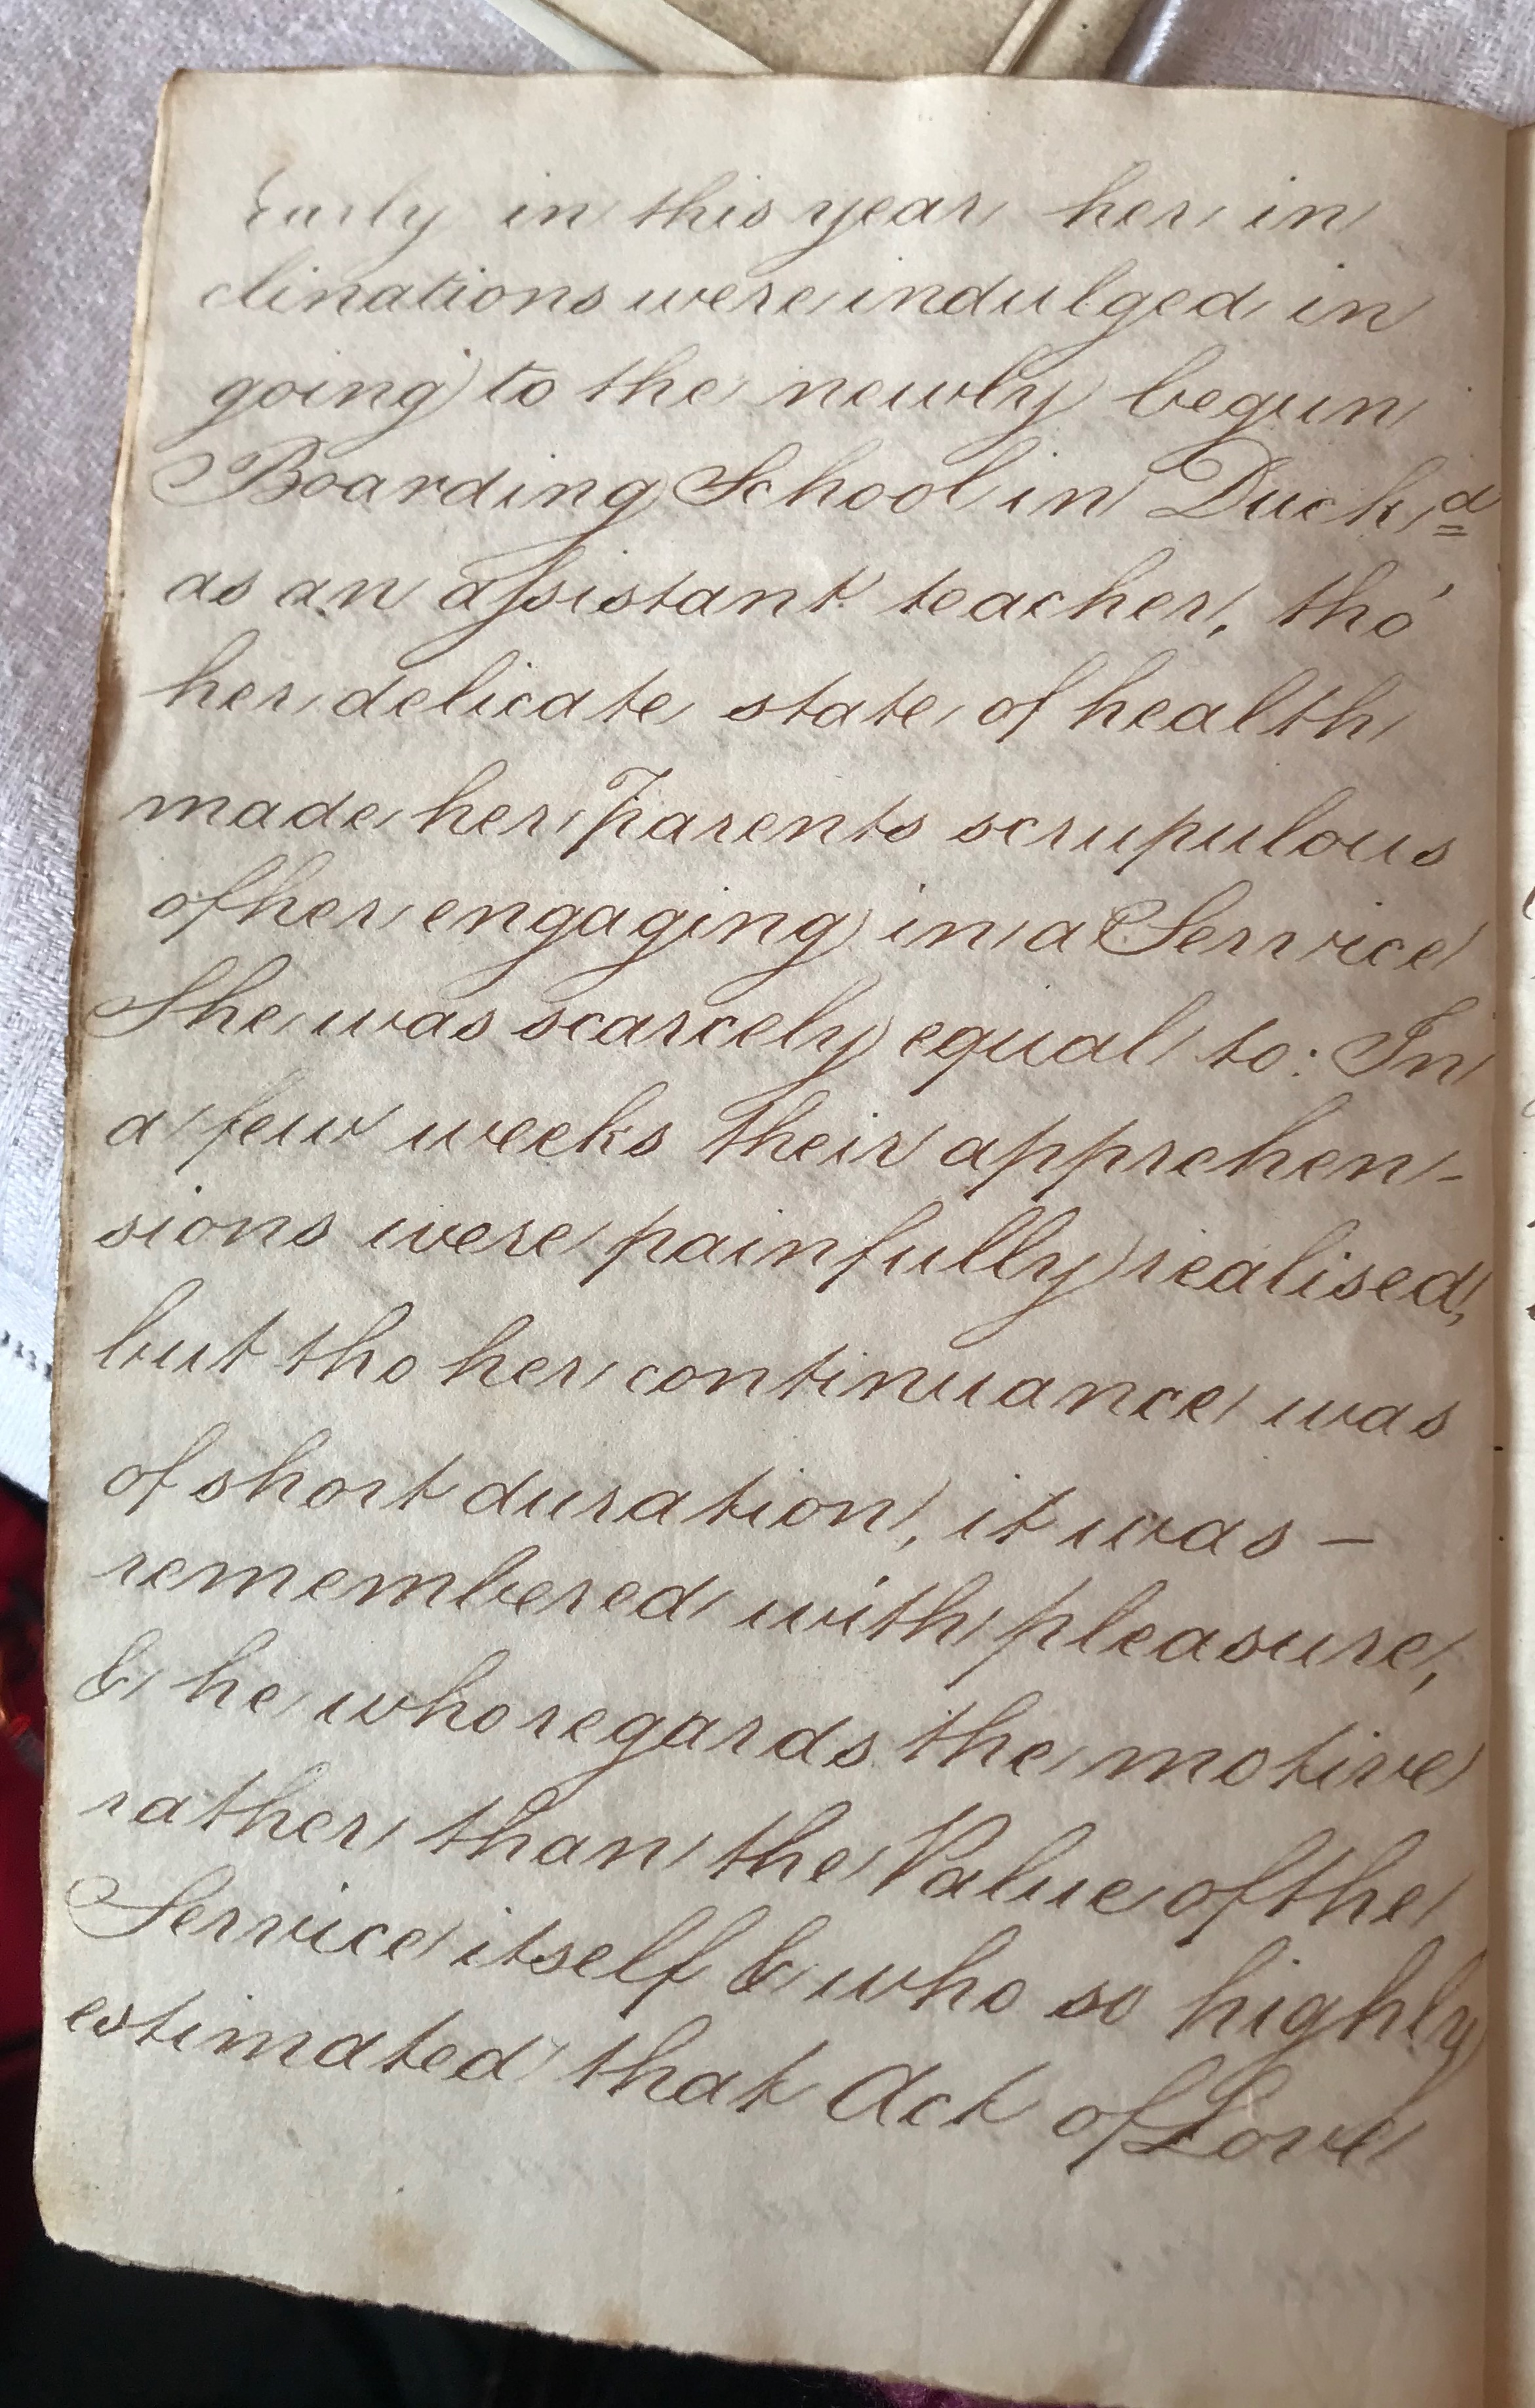 Early in this year her in
clinations were indulged in
going to the newly begun
Boarding School in Duckd
as an assistant teacher, tho'
her delicate state of health
made her Parents scrupulous
of her engaging in a Service
She was scarcely equal to: In
a few weeks their apprehen-
sions were painfully realised,
but tho her continuance was
of short duration, it was –
remembered with pleasure,
& he who regards the motive
rather than the Value of the
Service itself & who so highly
estimated that Act of Love